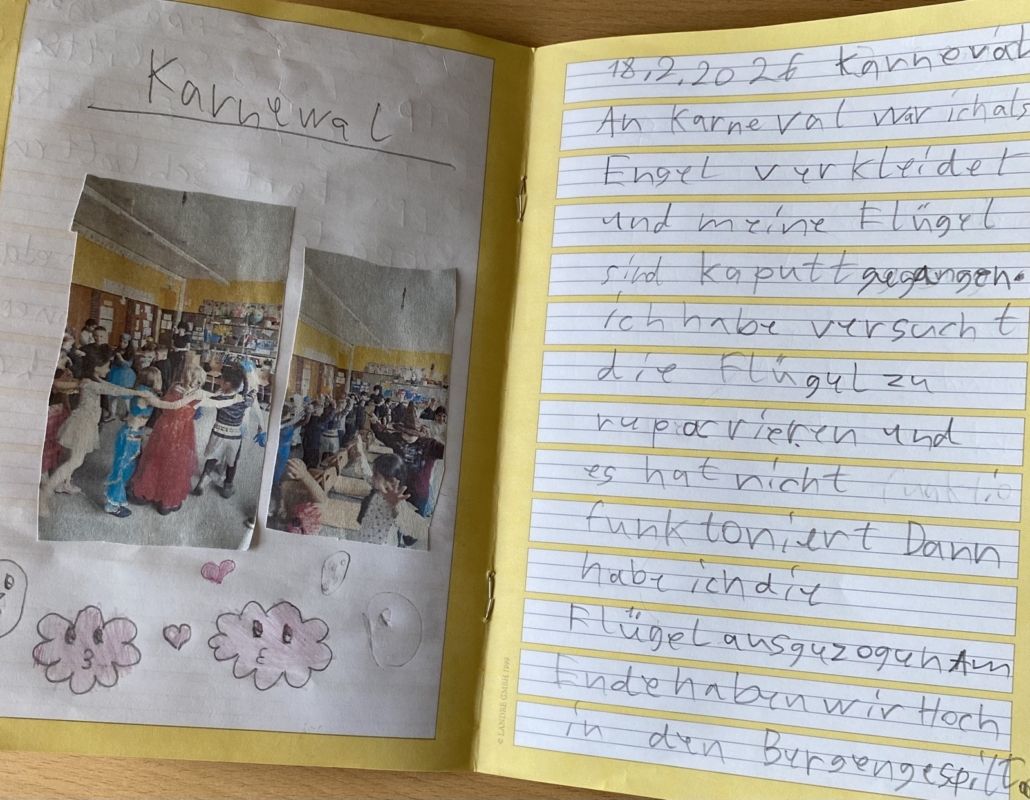 Karnewal
18.2.2026 Karneval
An Karneval war ich als
Engel verkleidet
und meine Flügel
sind kaputt gegangen.
ich habe versucht
die Flügel zu
reparieren und
es hat nicht funktio
funktoniert Dann
habe ich die
Flügel ausgezogen Am
Ende haben wir Hoch
in den Burgen gespilt.
© LANDRÉ GMBH 1999